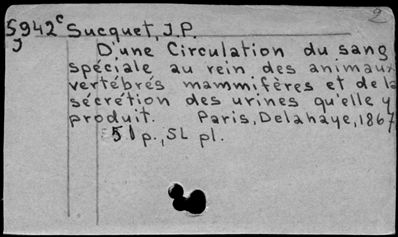 2
5942c Sucquet, J.P.
D'une Circulation du sang
spéciale au rein des animaux
vertébrés mammifères et de la
sécrétion des urines qu'elle y
produit. Paris, Delahaye, 1867
51 p., 5L pl.